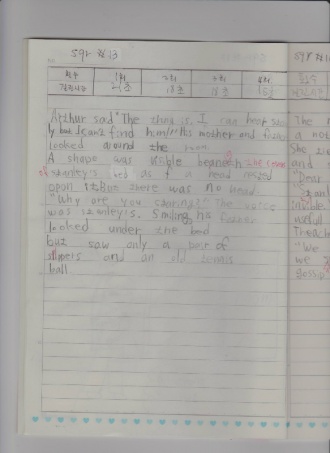 591 #13
횟수 1회 2회 3회 4회
Arthur said "The thing is, I can hear Stan
ly but I can't find him." His mother and father
looked around the room.
A shape was visible beneath the covers
Stanley's bed as if a head rested
upon it. But there was no head.
"Why are you staring?" The voice
was Stanley's. Smiling his father
looked under the bed
but saw only a pair of
slippers and an old tennis
ball
The
a no
She
and
"Dear
invible
usefull
Theteach
"We
we